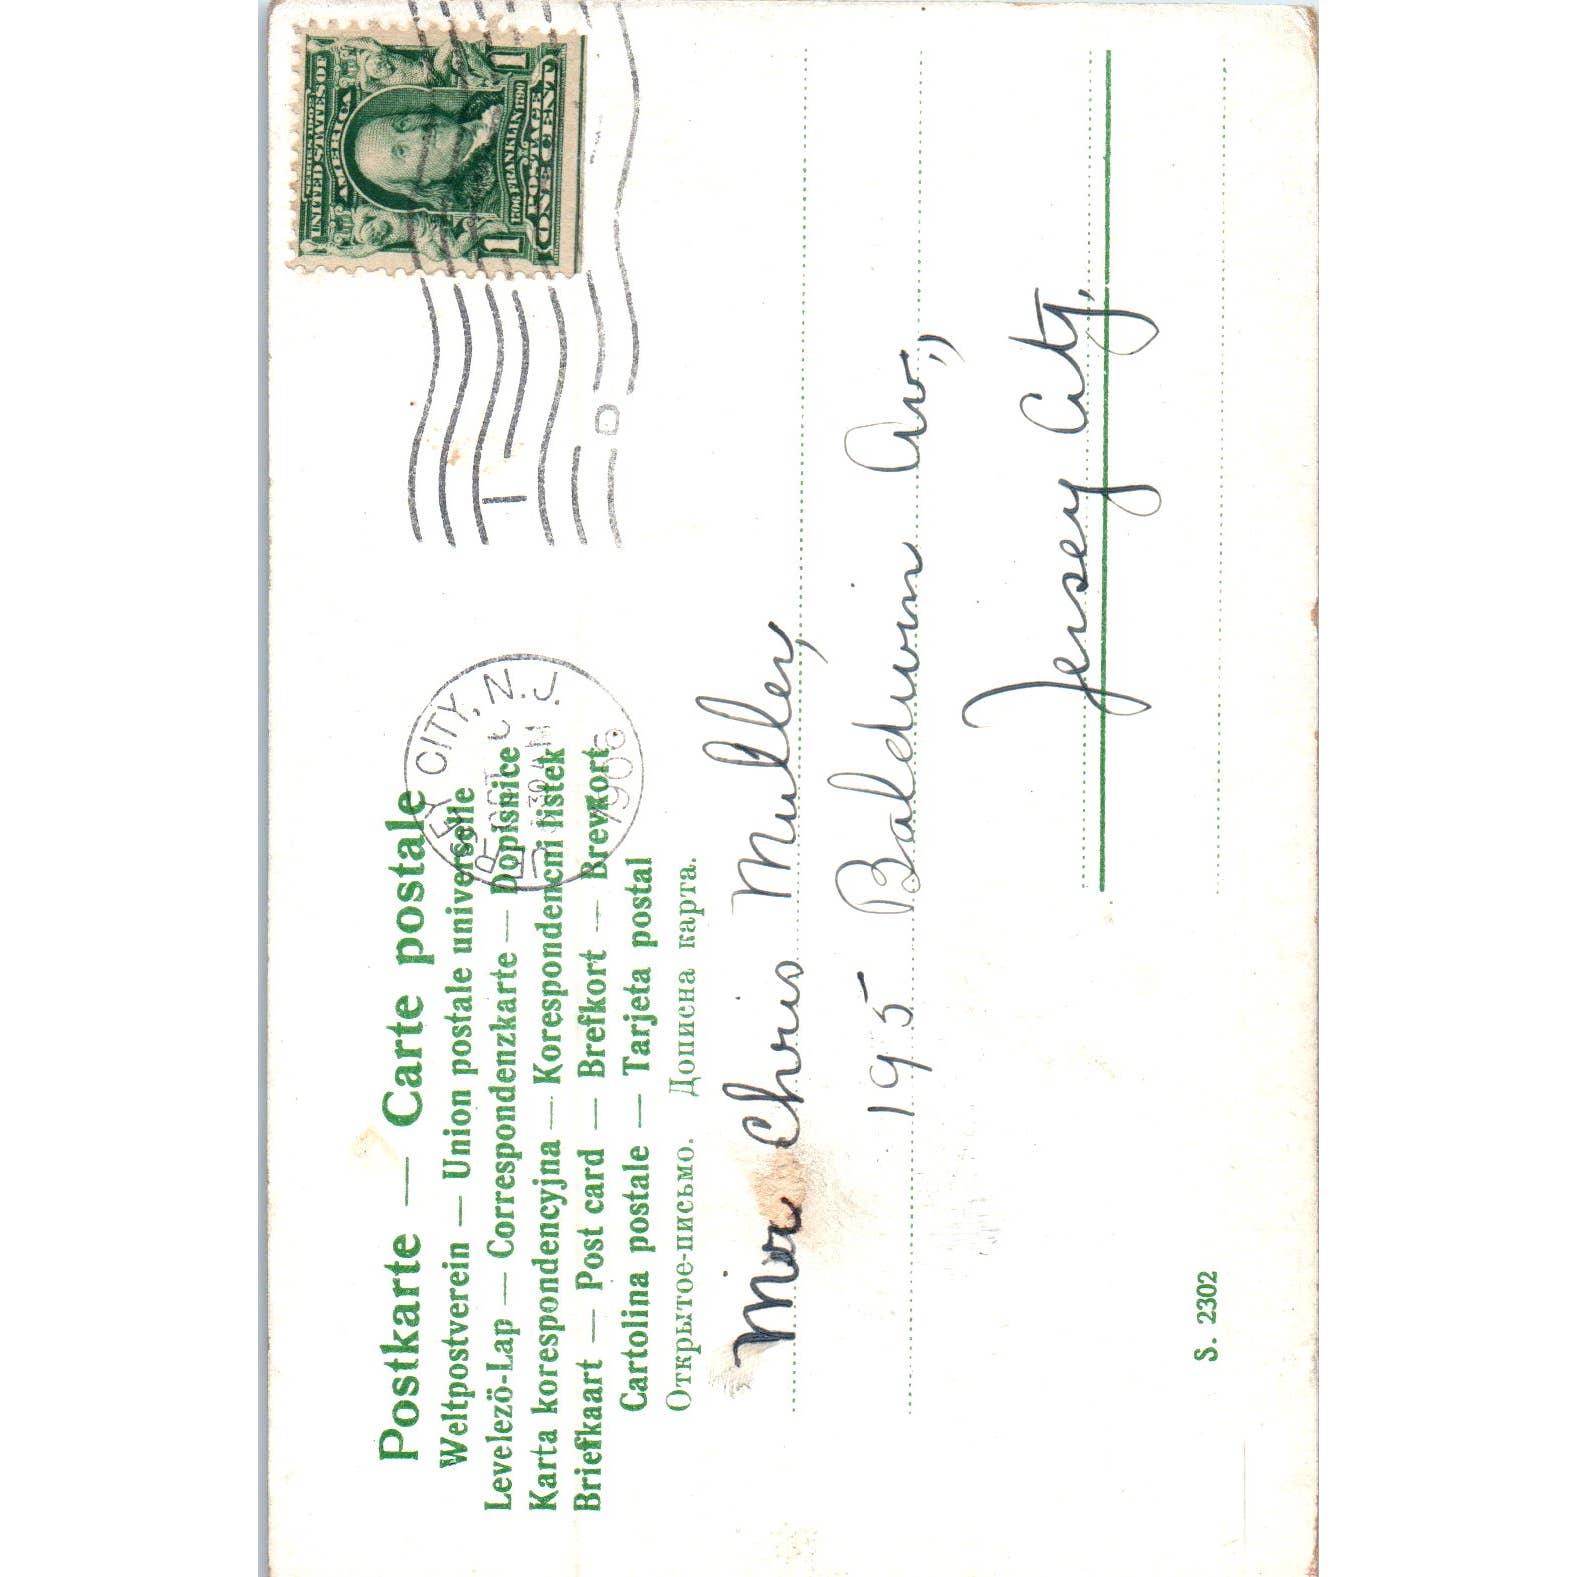 Postkarte — Carte postale
Weltpostverein — Union postale universelle
Levelezö-Lap — Correspondenzkarte — Dopisnice
Karta korespondencyjna — Korespondencni listek
Briefkaart — Post card — Brefkort — Brevkort
Cartolina postale — Tarjeta postal
Открытое-письмо. Дописна карта.
SERIES 1902
UNITED STATES OF
AMERICA
1706 FRANKLIN 1790
POSTAGE
1 ONE CENT 1
EY CITY, N.J.
OCT
30 AM
1906
D
Chris Muller,
195 Baldwin Av.,
Jersey City.
S. 2302